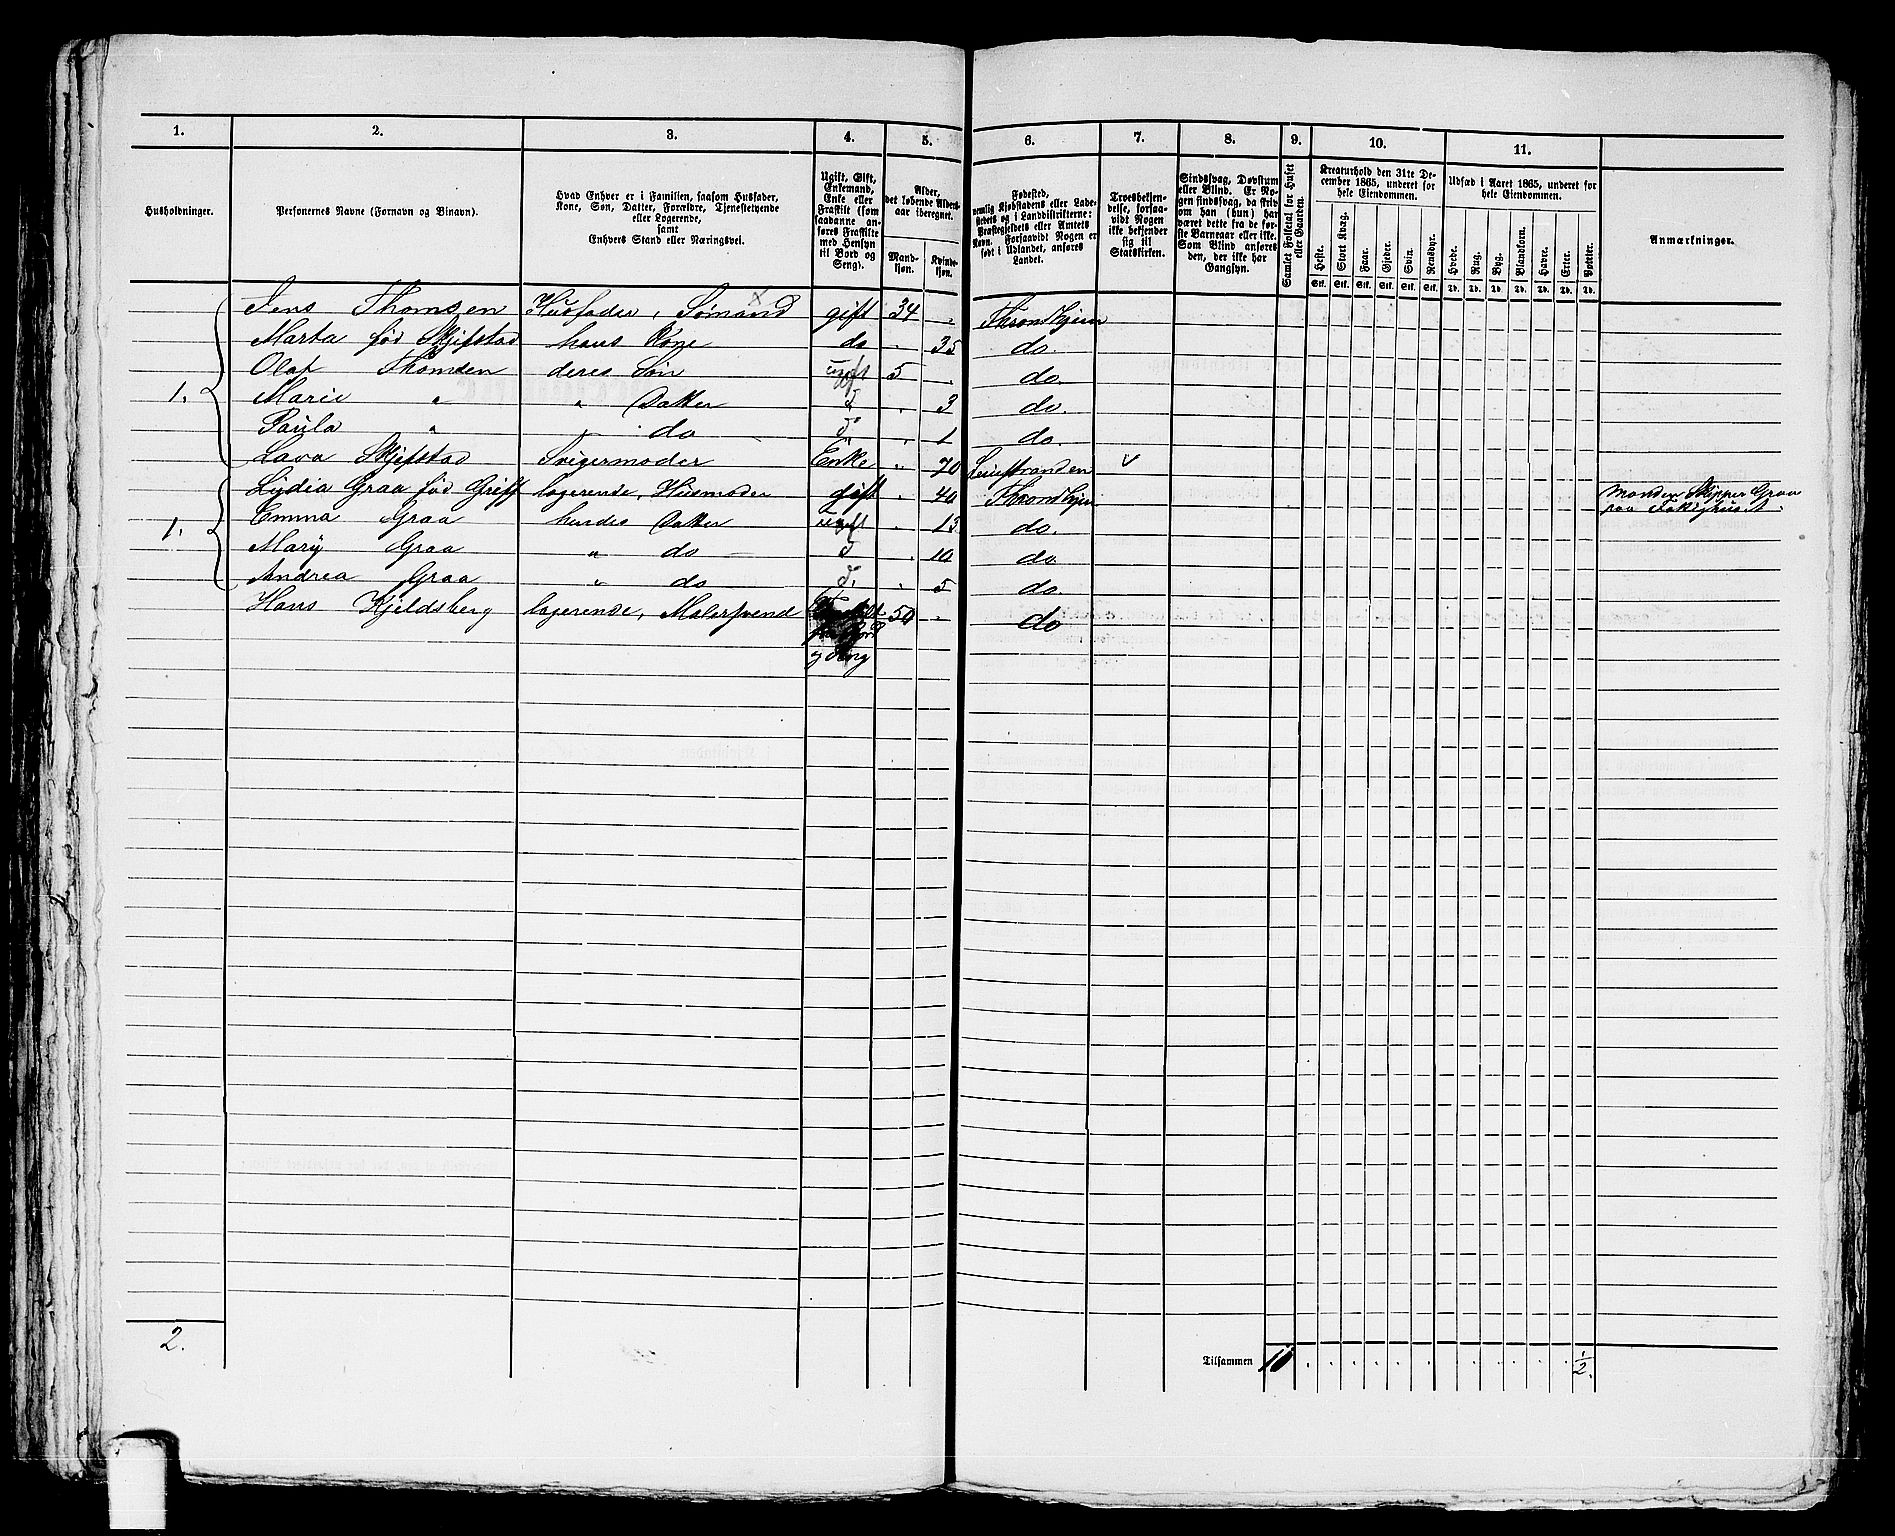 1. 2. 3. 4. 5. 6. 7. 8. 9. 10. 11.
Husholdninger.
Personernes Navne (Fornavn og Binavn).
Hvad Enhver er i Familien, saasom Husfader,
Kone, Søn, Datter, Forældre, Tjenestetyende
eller Logerende,
samt
Enhvers Stand eller Næringsvei.
Ugift, Gift,
Enkemand,
Enke eller
Fraskilt (som
saadanne an-
føres Fraskilte
med Hensyn
til Bord og
Seng).
Alder,
det løbende Alders-
aar iberegnet.
Mand-
kjøn.
Kvinde-
kjøn.
Fødested,
nemlig Kjøbstadens eller Lade-
stedets og i Landdistrikterne:
Præstegjeldets eller Amtets
Navn. Forsaavidt Nogen er
født i Udlandet, anføres
Landet.
Troesbekjen-
delse, forsaa-
vidt Nogen
ikke bekjender
sig til
Statskirken.
Sindssvag, Døvstum
eller Blind. Er No-
gen sindssvag, da skriv
om han (hun) har
været dette fra de før-
ste Barneaar eller ikke.
Som Blind anføres
den, der ikke har
Gangsyn.
Samlet Folketal for Huset
eller Gaarden.
Kreaturhold den 31te De-
cember 1865, underet for
hele Eiendommen.
Heste. Stort Kvæg. Faar. Gjeder. Svin. Rensdyr.
Stk. Stk. Stk. Stk. Stk. Stk.
Udsæd i Aaret 1865, underet for
hele Eiendommen.
Hvede. Rug. Byg. Blandkorn. Havre. Erter. Poteter.
Td. Td. Td. Td. Td. Td. Td.
Anmærkninger.
Jens Thomsen Husfader, Sømand gift 34 . Throndhjem
Marta fød Skjefstad hans Kone do . 35 do.
Olaf Thomsen deres Søn ugift 5 . do.
1. Marie " " Datter d . 3 do.
Paula " " do d . 1 do.
Lava Skjefstad Svigermoder Enke " 70 v
Lydia Graa fød Griff logerende, Husmoder gift . 40 Throndhjem Manden Skipper Graa
paa
1. Emma Graa hendes Datter ugift . 13 do.
Mary Graa " do d . 10 do
Andrea Graa " do d. . 5 do
Hans Kjeldsberg logerende, Malersvend 50 . do
og Seng
2.
Tilsammen 10 . . . . . . . . . . . . 1/2.